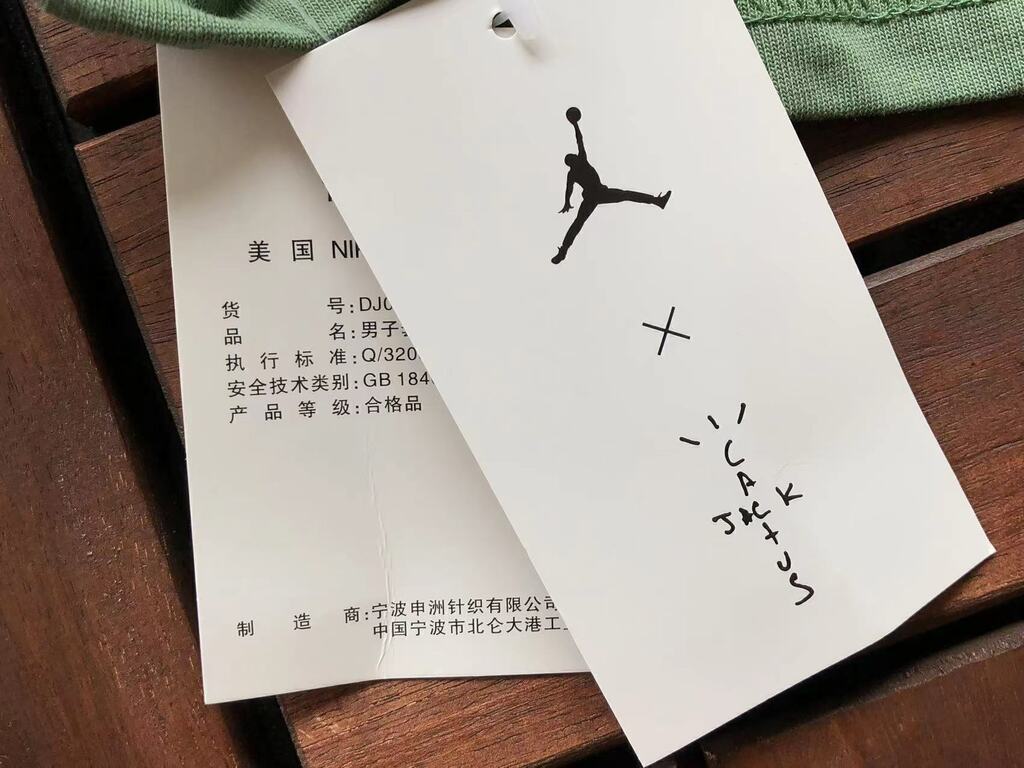 美 国 NIK
货 号:DJ0
品 名:男子
执 行 标 准:Q/320
安全技术类别:GB 184
产 品 等 级:合格品
制 造 商:宁波申洲针织有限公司
中国宁波市北仑大港工
X
CACTUS
JACK